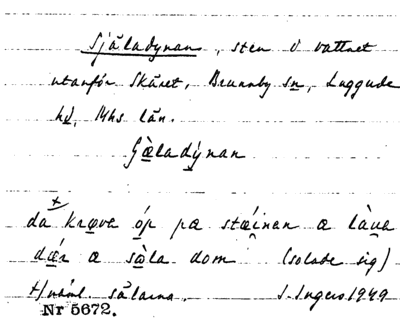 Själadynan, sten i vattnet
utanför Skäret, Brunnby sn, Luggude
hd, Mhs län.
Sæ̀ladýnan
da kræve óp pæ stæinen æ làva
dǽr æ sòla dom (solade sig)
+/ näml. sälarna. S. Ingers 1949
Nr 5672.